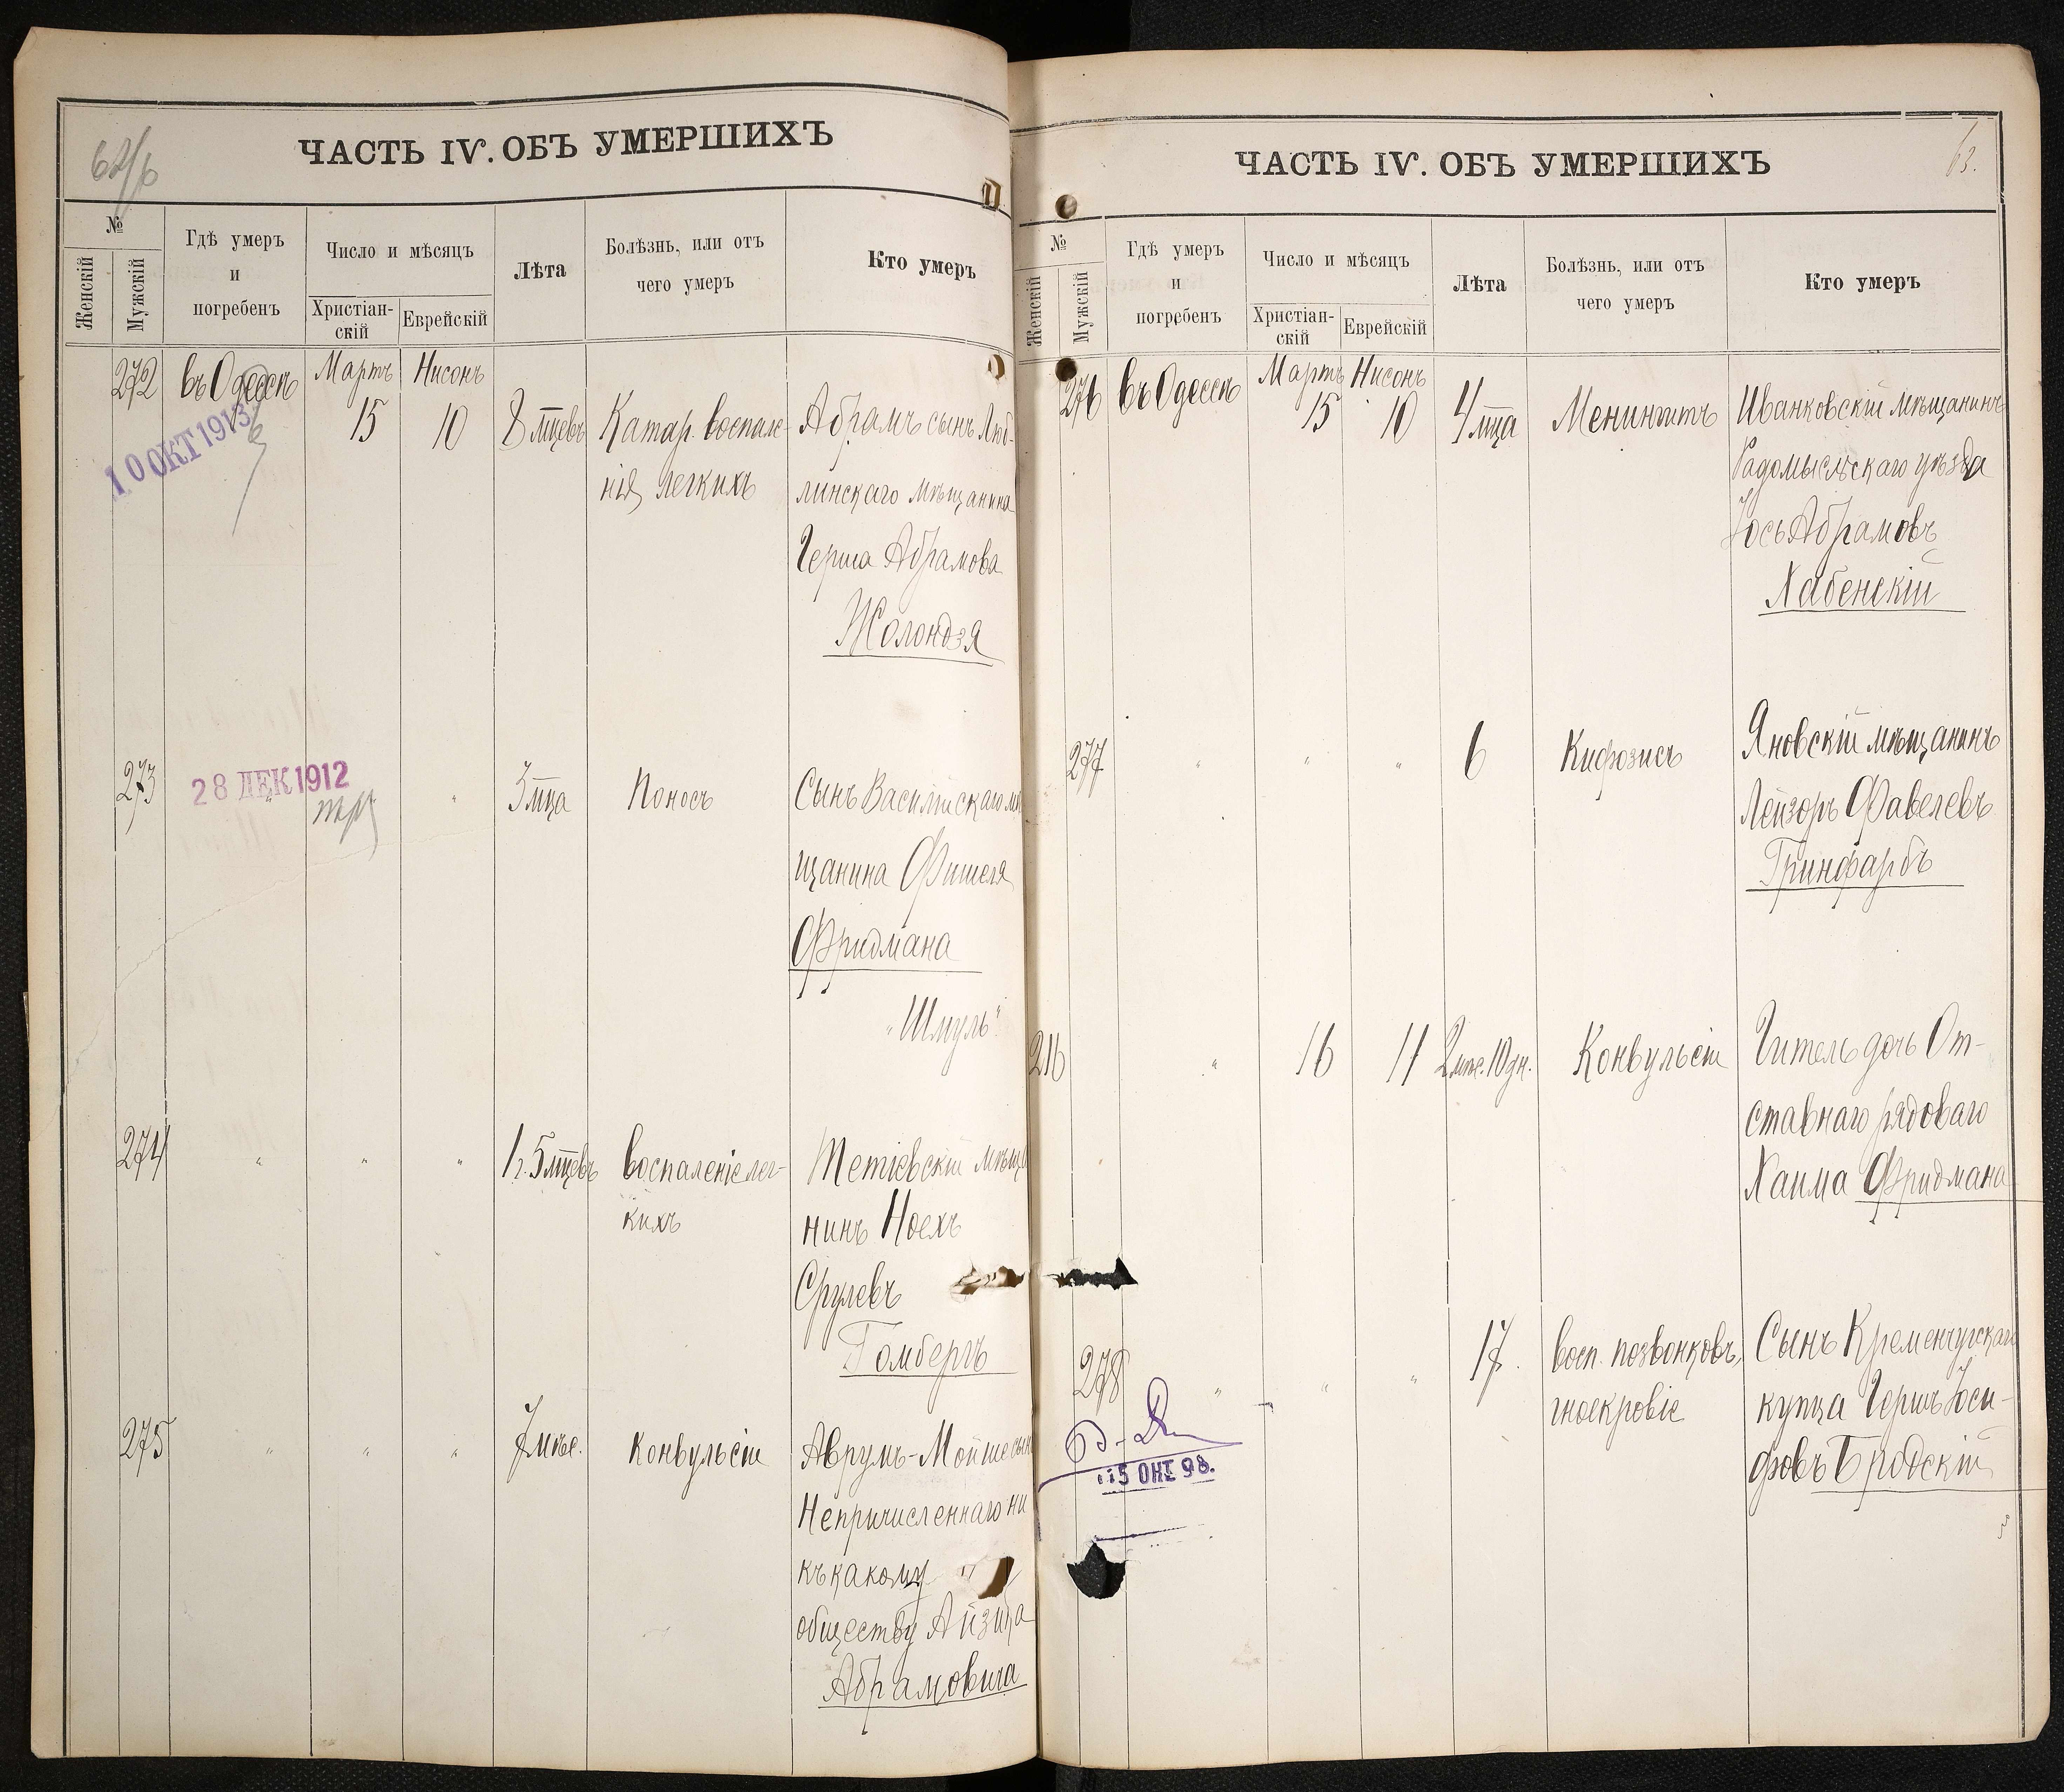 ЧАСТЬ IV. ОБЪ УМЕРШИХЪ
№
Женскій
Мужскій
Гдѣ умеръ
и
погребенъ
Число и мѣсяцъ
Христіан-
скій
Еврейскій
Лѣта
Болѣзнь, или отъ
чего умеръ
Кто умеръ
272 въ Одессѣ Мартъ Нисонъ
15 10 8 мцевъ Катар. воспале- Абрамъ сынъ Люб-
нія легкихъ линскаго мѣщанина
10 ОКТ 1913
Герша Абрамова
Жолондзя
273 " " 3 мца Поносъ Сынъ Василійскаго мѣ
28 ДЕК 1912
щанина Фишеля
Фридмана
"Шмуль"
274 " " " 1 г. 5 мцевъ воспаленіе лег- Тетіевскій мѣща
кихъ нинъ Ноехъ
Срулевъ
Гомбергъ
275 " " " 7 мѣс. Конвульсіи Аврумъ-Мойше сынъ
Непричисленнаго ни
къ какому
обществу Айзика
Абрамовича
ЧАСТЬ IV. ОБЪ УМЕРШИХЪ
63.
№
Женскій
Мужскій
Гдѣ умеръ
и
погребенъ
Число и мѣсяцъ
Христіан-
скій
Еврейскій
Лѣта
Болѣзнь, или отъ
чего умеръ
Кто умеръ
276 въ Одессѣ Мартъ Нисонъ
15 10 4 мца Менингитъ Иванковскій мѣщанинъ
Радомысльскаго уѣзда
Іось Абрамовъ
Хабенскій
277 " " " 6 Кифозисъ Яновскій мѣщанинъ
Лейзоръ Фавелевъ
Гринфарбъ
216 " 16 11 2 мѣс. 10 дн. Конвульсіи Гитель дочь От-
ставнаго рядоваго
Хаима Фридмана
278 " " " 17. восп. позвонковъ, Сынъ Кременчугскаго
гноекровіе купца Гершъ Іоси-
фовъ Бродскій
15 ОКТ 98.